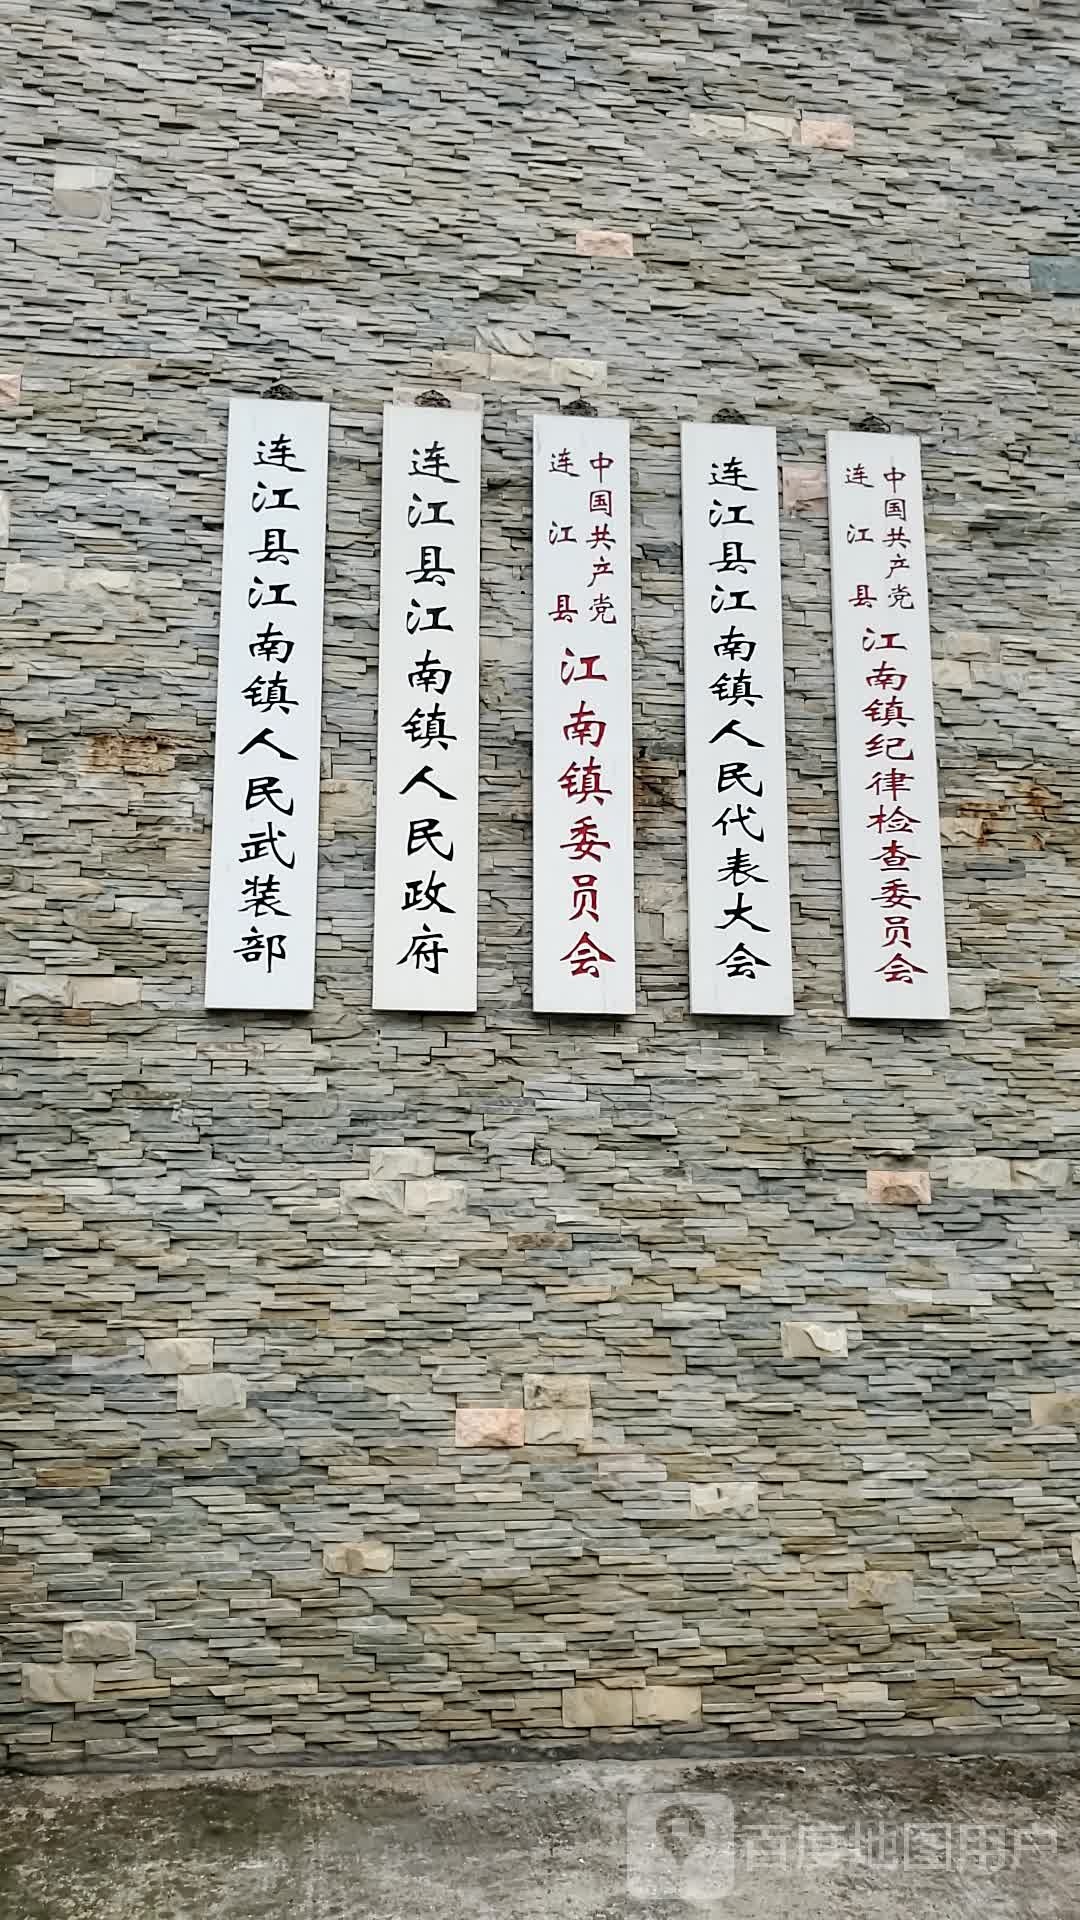 连江县江南镇人民武装部
连江县江南镇人民政府
中国共产党
连江县
江南镇委员会
连江县江南镇人民代表大会
中国共产党
连江县
江南镇纪律检查委员会
百度地图用户